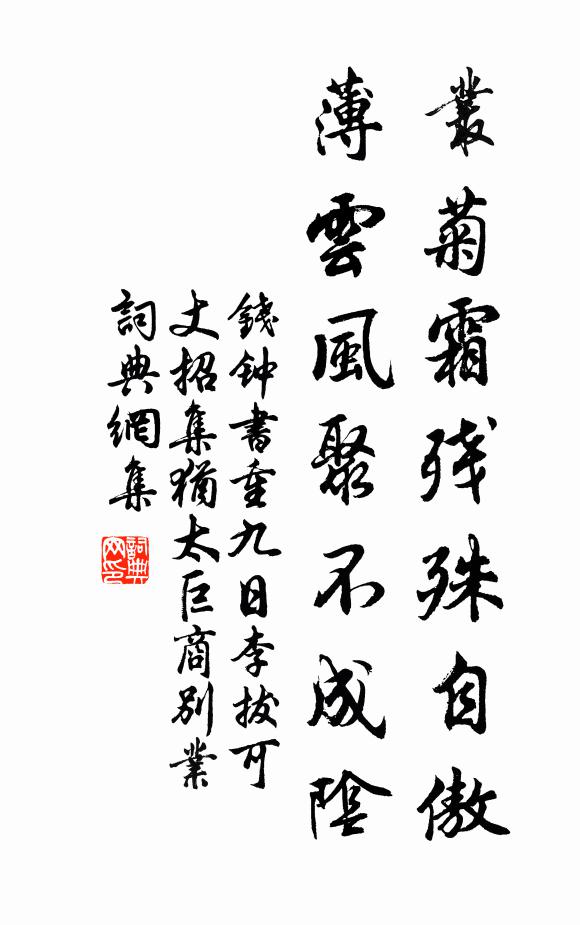 叢菊霜残殊自傲
薄雲風聚不成陰
錢钟書重九日李拔可
丈招集猶太巨商別業
詞典網集
詞典
网印